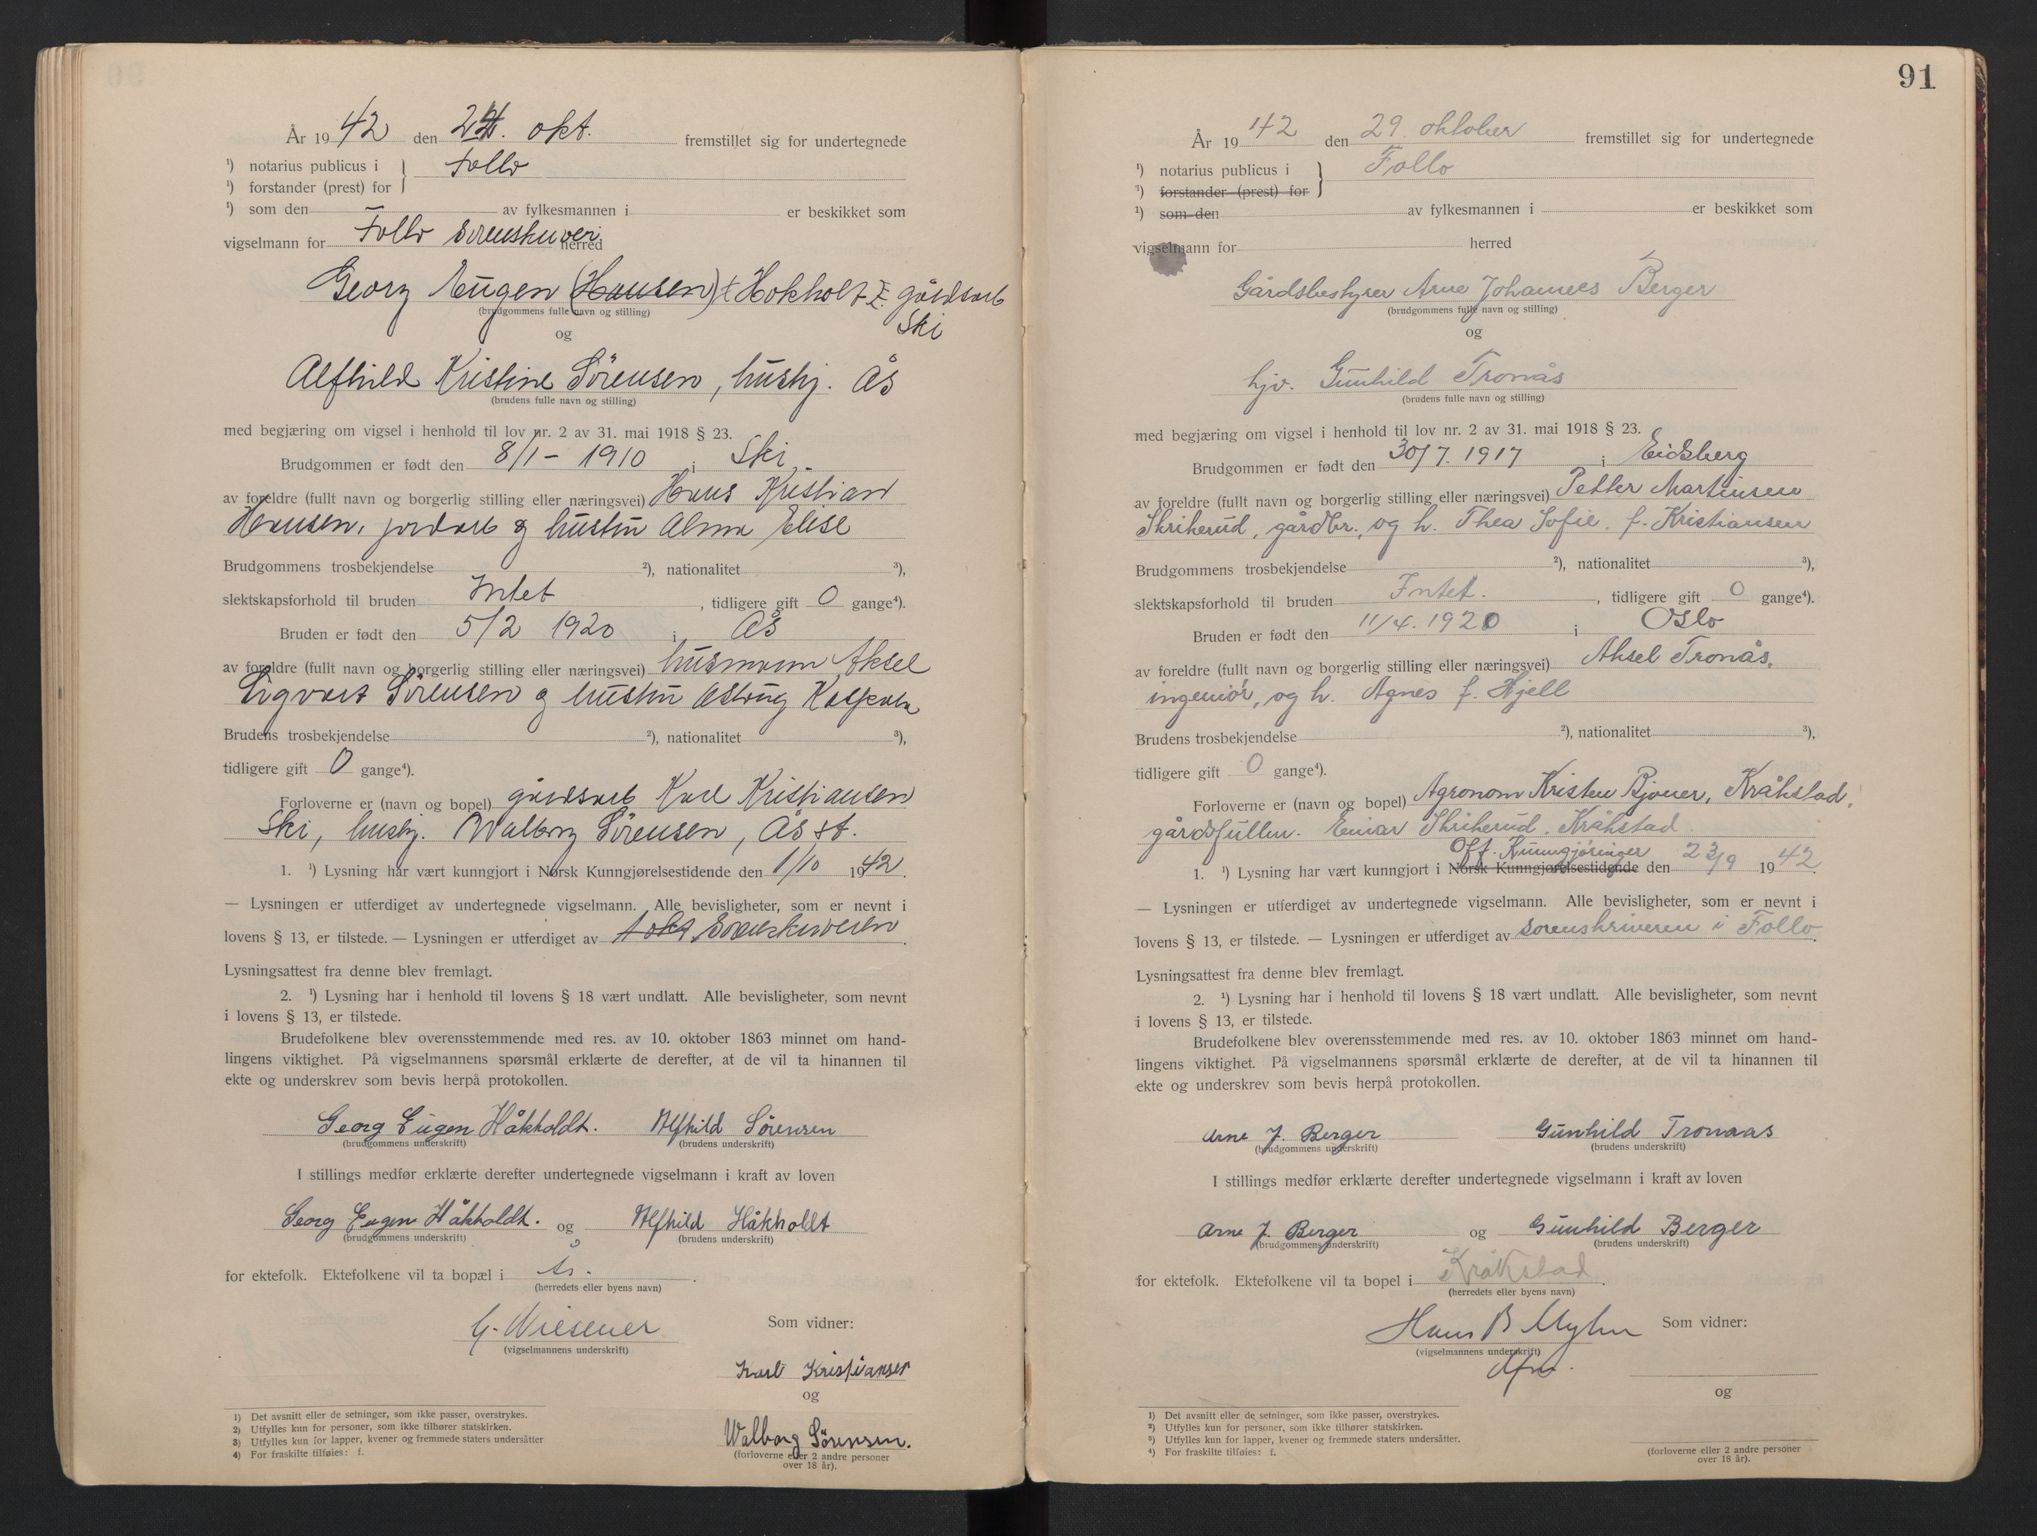 År 1942 den 24. okt. fremstillet sig for undertegnede
¹) notarius publicus i } Follo
¹) forstander (prest) for
¹) som den av fylkesmannen i er beskikket som
vigselmann for Follo Sorenskriveri herred
Georg Eugen (Hansen) Hokholt gårdsarb
Ski
(brudgommens fulle navn og stilling)
og
Alfhild Kristine Sörensen, hushj. Ås
(brudens fulle navn og stilling)
med begjæring om vigsel i henhold til lov nr. 2 av 31. mai 1918 § 23.
Brudgommen er født den 8/1 - 1910 i Ski.
av foreldre (fullt navn og borgerlig stilling eller næringsvei) Hans Kristian
Hansen, jordarb & hustru Alma Elise
Brudgommens trosbekjendelse ²), nationalitet ³),
slektskapsforhold til bruden Intet, tidligere gift 0 gange⁴).
Bruden er født den 5/2 1920 i Ås
av foreldre (fullt navn og borgerlig stilling eller næringsvei) husmann Aksel
Sigvart Sörensen & hustru Astrug
Brudens trosbekjendelse ²), nationalitet ³),
tidligere gift 0 gange⁴).
Forloverne er (navn og bopel) gårdsarb Karl Kristiansen
Ski, hushj. Walborg Sörensen, Ås st.
1. ¹) Lysning har vært kunngjort i Norsk Kunngjørelsestidende den 1/10 1942.
— Lysningen er utferdiget av undertegnede vigselmann. Alle bevisligheter, som er nevnt i
lovens § 13, er tilstede. — Lysningen er utferdiget av Sorenskriveren.
Lysningsattest fra denne blev fremlagt.
2. ¹) Lysning har i henhold til lovens § 18 vært undlatt. Alle bevisligheter, som nevnt
i lovens § 13, er tilstede.
Brudefolkene blev overensstemmende med res. av 10. oktober 1863 minnet om hand-
lingens viktighet. På vigselmannens spørsmål erklærte de derefter, at de vil ta hinannen til
ekte og underskrev som bevis herpå protokollen.
Georg Eugen Håkholdt. Alfhild Sörensen
(brudgommens underskrift) (brudens underskrift)
I stillings medfør erklærte derefter undertegnede vigselmann i kraft av loven
Georg Eugen Håkholdt. og Alfhild Håkholdt
(brudgommens underskrift) (brudens underskrift)
for ektefolk. Ektefolkene vil ta bopæl i Ås.
(herredets eller byens navn)
G. Wiesener Som vidner:
(vigselmannens underskrift)
Karl Kristiansen
og
Walborg Sörensen.
(forloverne eller 2 andre personer
over 18 år).
1) Det avsnitt eller de setninger, som ikke passer, overstrykes.
2) Utfylles kun for personer, som ikke tilhører statskirken.
3) Utfylles kun for lapper, kvener og fremmede staters undersåtter
4) For fraskilte tilføies: f.
91
År 1942 den 29. oktober fremstillet sig for undertegnede
¹) notarius publicus i } Follo
¹) forstander (prest) for
¹) som den av fylkesmannen i er beskikket som
vigselmann for herred
Gårdsbestyrer Arne Johannes Berger
(brudgommens fulle navn og stilling)
og
hjv. Gunhild Tronås
(brudens fulle navn og stilling)
med begjæring om vigsel i henhold til lov nr. 2 av 31. mai 1918 § 23.
Brudgommen er født den 30/7. 1917 i Eidsberg
av foreldre (fullt navn og borgerlig stilling eller næringsvei) Petter Martinsen
Skriherud, gårdbr., og h. Thea Sofie. f. Kristiansen
Brudgommens trosbekjendelse ²), nationalitet ³),
slektskapsforhold til bruden Intet., tidligere gift 0 gange⁴).
Bruden er født den 11/4. 1920 i Oslo
av foreldre (fullt navn og borgerlig stilling eller næringsvei) Aksel Tronås,
ingeniör, og h. Agnes f. Hjell
Brudens trosbekjendelse ²), nationalitet ³),
tidligere gift 0 gange⁴).
Forloverne er (navn og bopel) Agronom Kristen Bjöner, Kråkstad,
gårdsfullm. Einar Skriherud, Kråkstad
Off. Kunngjöringer
1. ¹) Lysning har vært kunngjort i Norsk Kunngjørelsestidende den 23/9 1942.
— Lysningen er utferdiget av undertegnede vigselmann. Alle bevisligheter, som er nevnt i
lovens § 13, er tilstede. — Lysningen er utferdiget av sorenskriveren i Follo.
Lysningsattest fra denne blev fremlagt.
2. ¹) Lysning har i henhold til lovens § 18 vært undlatt. Alle bevisligheter, som nevnt
i lovens § 13, er tilstede.
Brudefolkene blev overensstemmende med res. av 10. oktober 1863 minnet om hand-
lingens viktighet. På vigselmannens spørsmål erklærte de derefter, at de vil ta hinannen til
ekte og underskrev som bevis herpå protokollen.
Arne J. Berger Gunhild Tronaas
(brudgommens underskrift) (brudens underskrift)
I stillings medfør erklærte derefter undertegnede vigselmann i kraft av loven
Arne J. Berger og Gunhild Berger
(brudgommens underskrift) (brudens underskrift)
for ektefolk. Ektefolkene vil ta bopel i Kråkstad.
(herredets eller byens navn)
Hans B Myhre Som vidner:
(vigselmannens underskrift)
og
(forloverne eller 2 andre personer
over 18 år).
¹) Det avsnitt eller de setninger, som ikke passer, overstrykes.
²) Utfylles kun for personer, som ikke tilhører statskirken.
³) Utfylles kun for lapper, kvener og fremmede staters undersåtter.
⁴) For fraskilte tilføies: f.